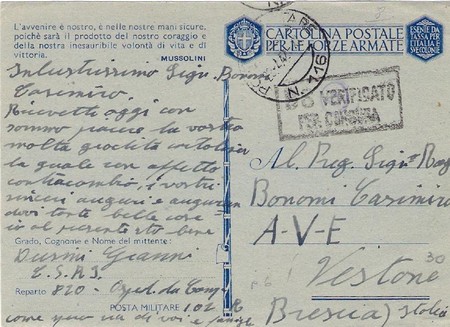 L'avvenire è nostro, è nelle nostre mani sicure,
poichè sarà il prodotto del nostro coraggio e
della nostra inesauribile volontà di vita e di
vittoria.
MUSSOLINI
CARTOLINA POSTALE
PER LE FORZE ARMATE
ESENTE DA
TASSA PER
L'ITALIA E
SUE COLONIE
N. 116
VERIFICATO
PER CENSURA
Bonomi
Casimiro.
Ricevetti oggi con
sommo piacere la vostra
molta gradita cartolina
la quale con affetto
contracambio, i vostri
sinceri auguri e
tante belle cose
io al presente sto bene
Grado, Cognome e Nome del mittente:
Gianni
Reparto 820 - da Camp
POSTA MILITARE 102
come voi e
Al
Bonomi Casimiro
A-V-E
Vestone
30
Brescia) Italia